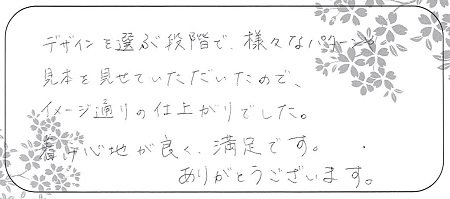 デザインを選ぶ段階で、様々なパターンや
見本を見せていただいたので、
イメージ通りの仕上がりでした。
着け心地が良く、満足です。
ありがとうございます。